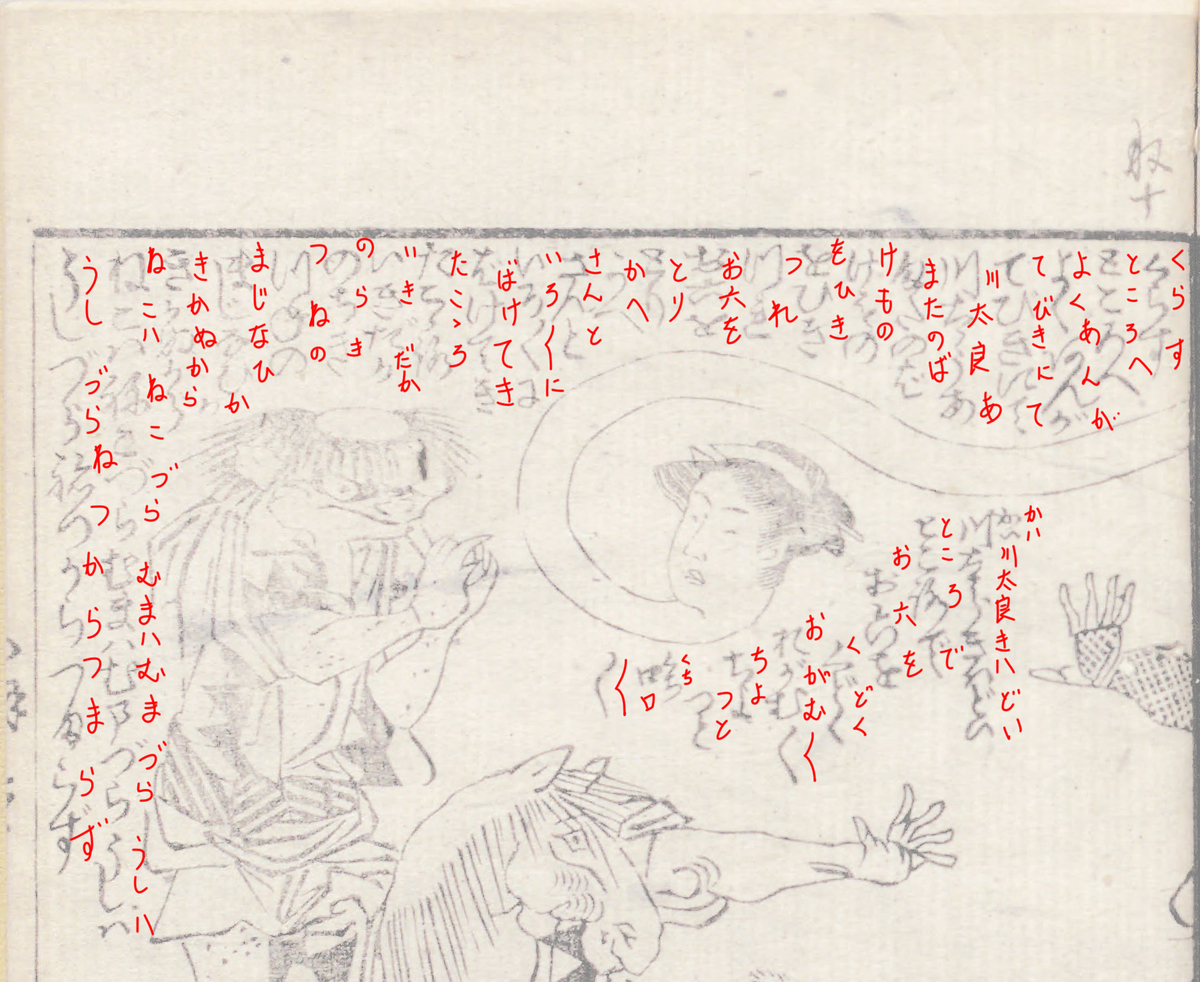 くらす
ところへ
よくあんんが
てびきにて
川太良あ
またのば
けもの
をひき
つれ
お六を
とり
かへ
さんと
いろ〳〵に
ばけてき
たこゝろ
いきだか
のらき
つねの
まじなひか
きかぬから
ねこハねこづらむまハむまづらうしハ
うしづらねつからつまらず
かハ川太良きハどい
ところで
お六を
くどく
おがむ〳〵
ちよ
つと
くち
口
〳〵